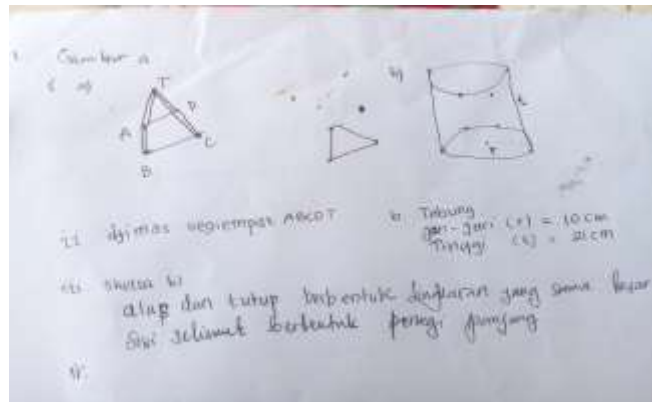 Gambar a
a)
T
D
A
C
B
b)
t
r
ii limas segiempat ABCDT
b. Tabung
jari-jari (r) = 10 cm
Tinggi (t) = 21 cm
iii
b)
alas dan tutup berbentuk lingkaran yang sama besar
Sisi selimut berbentuk persegi panjang